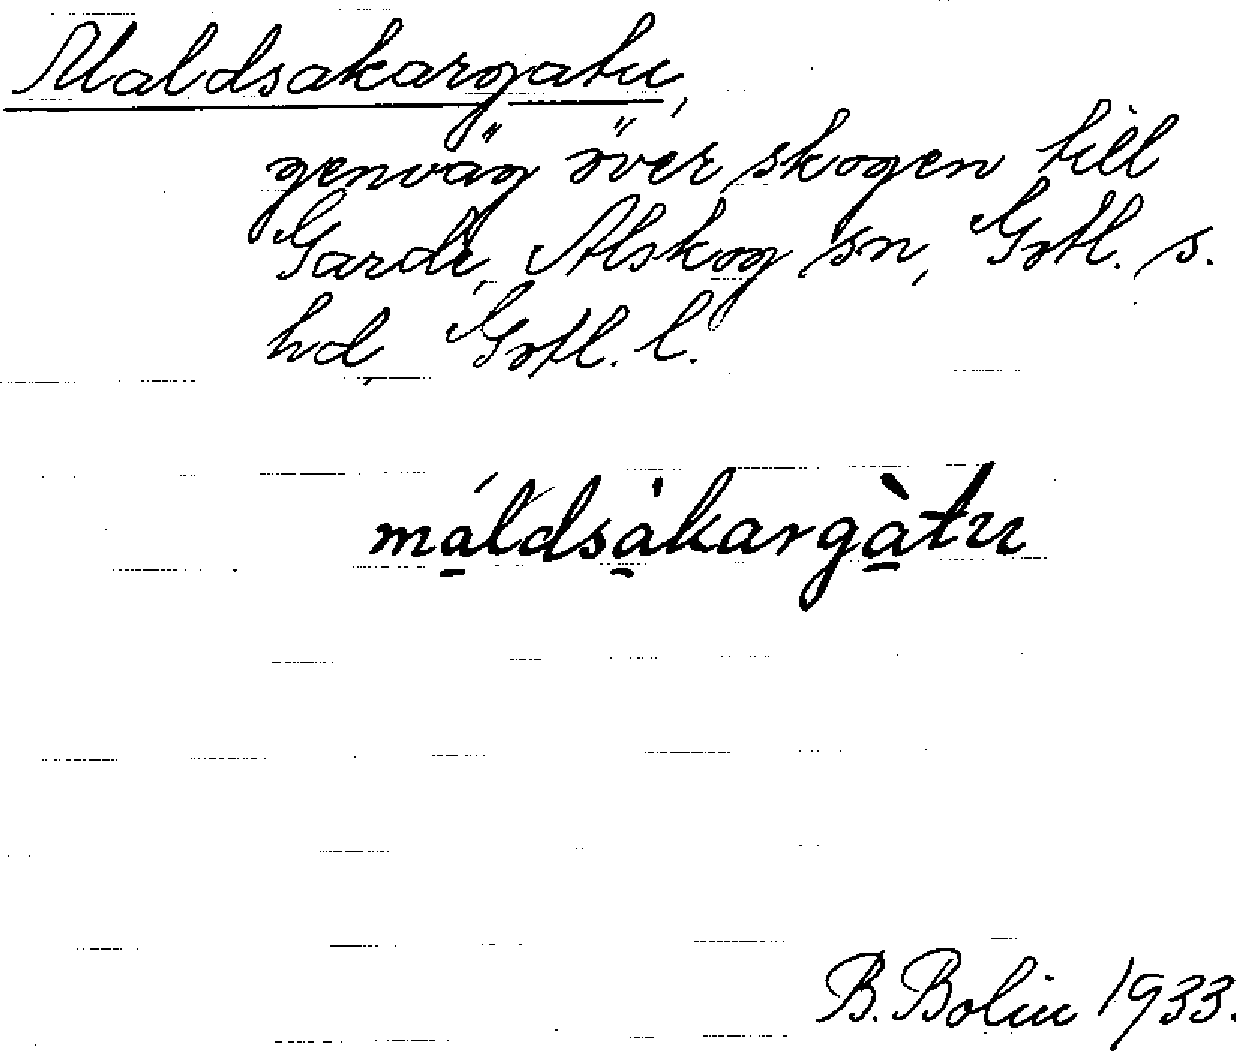 Maldsakargatu,
genväg över skogen till
Garde, Alskog sn, Gotl. s.
hd, Gotl. l.
máldsakargàtu
B. Bolin 1933.